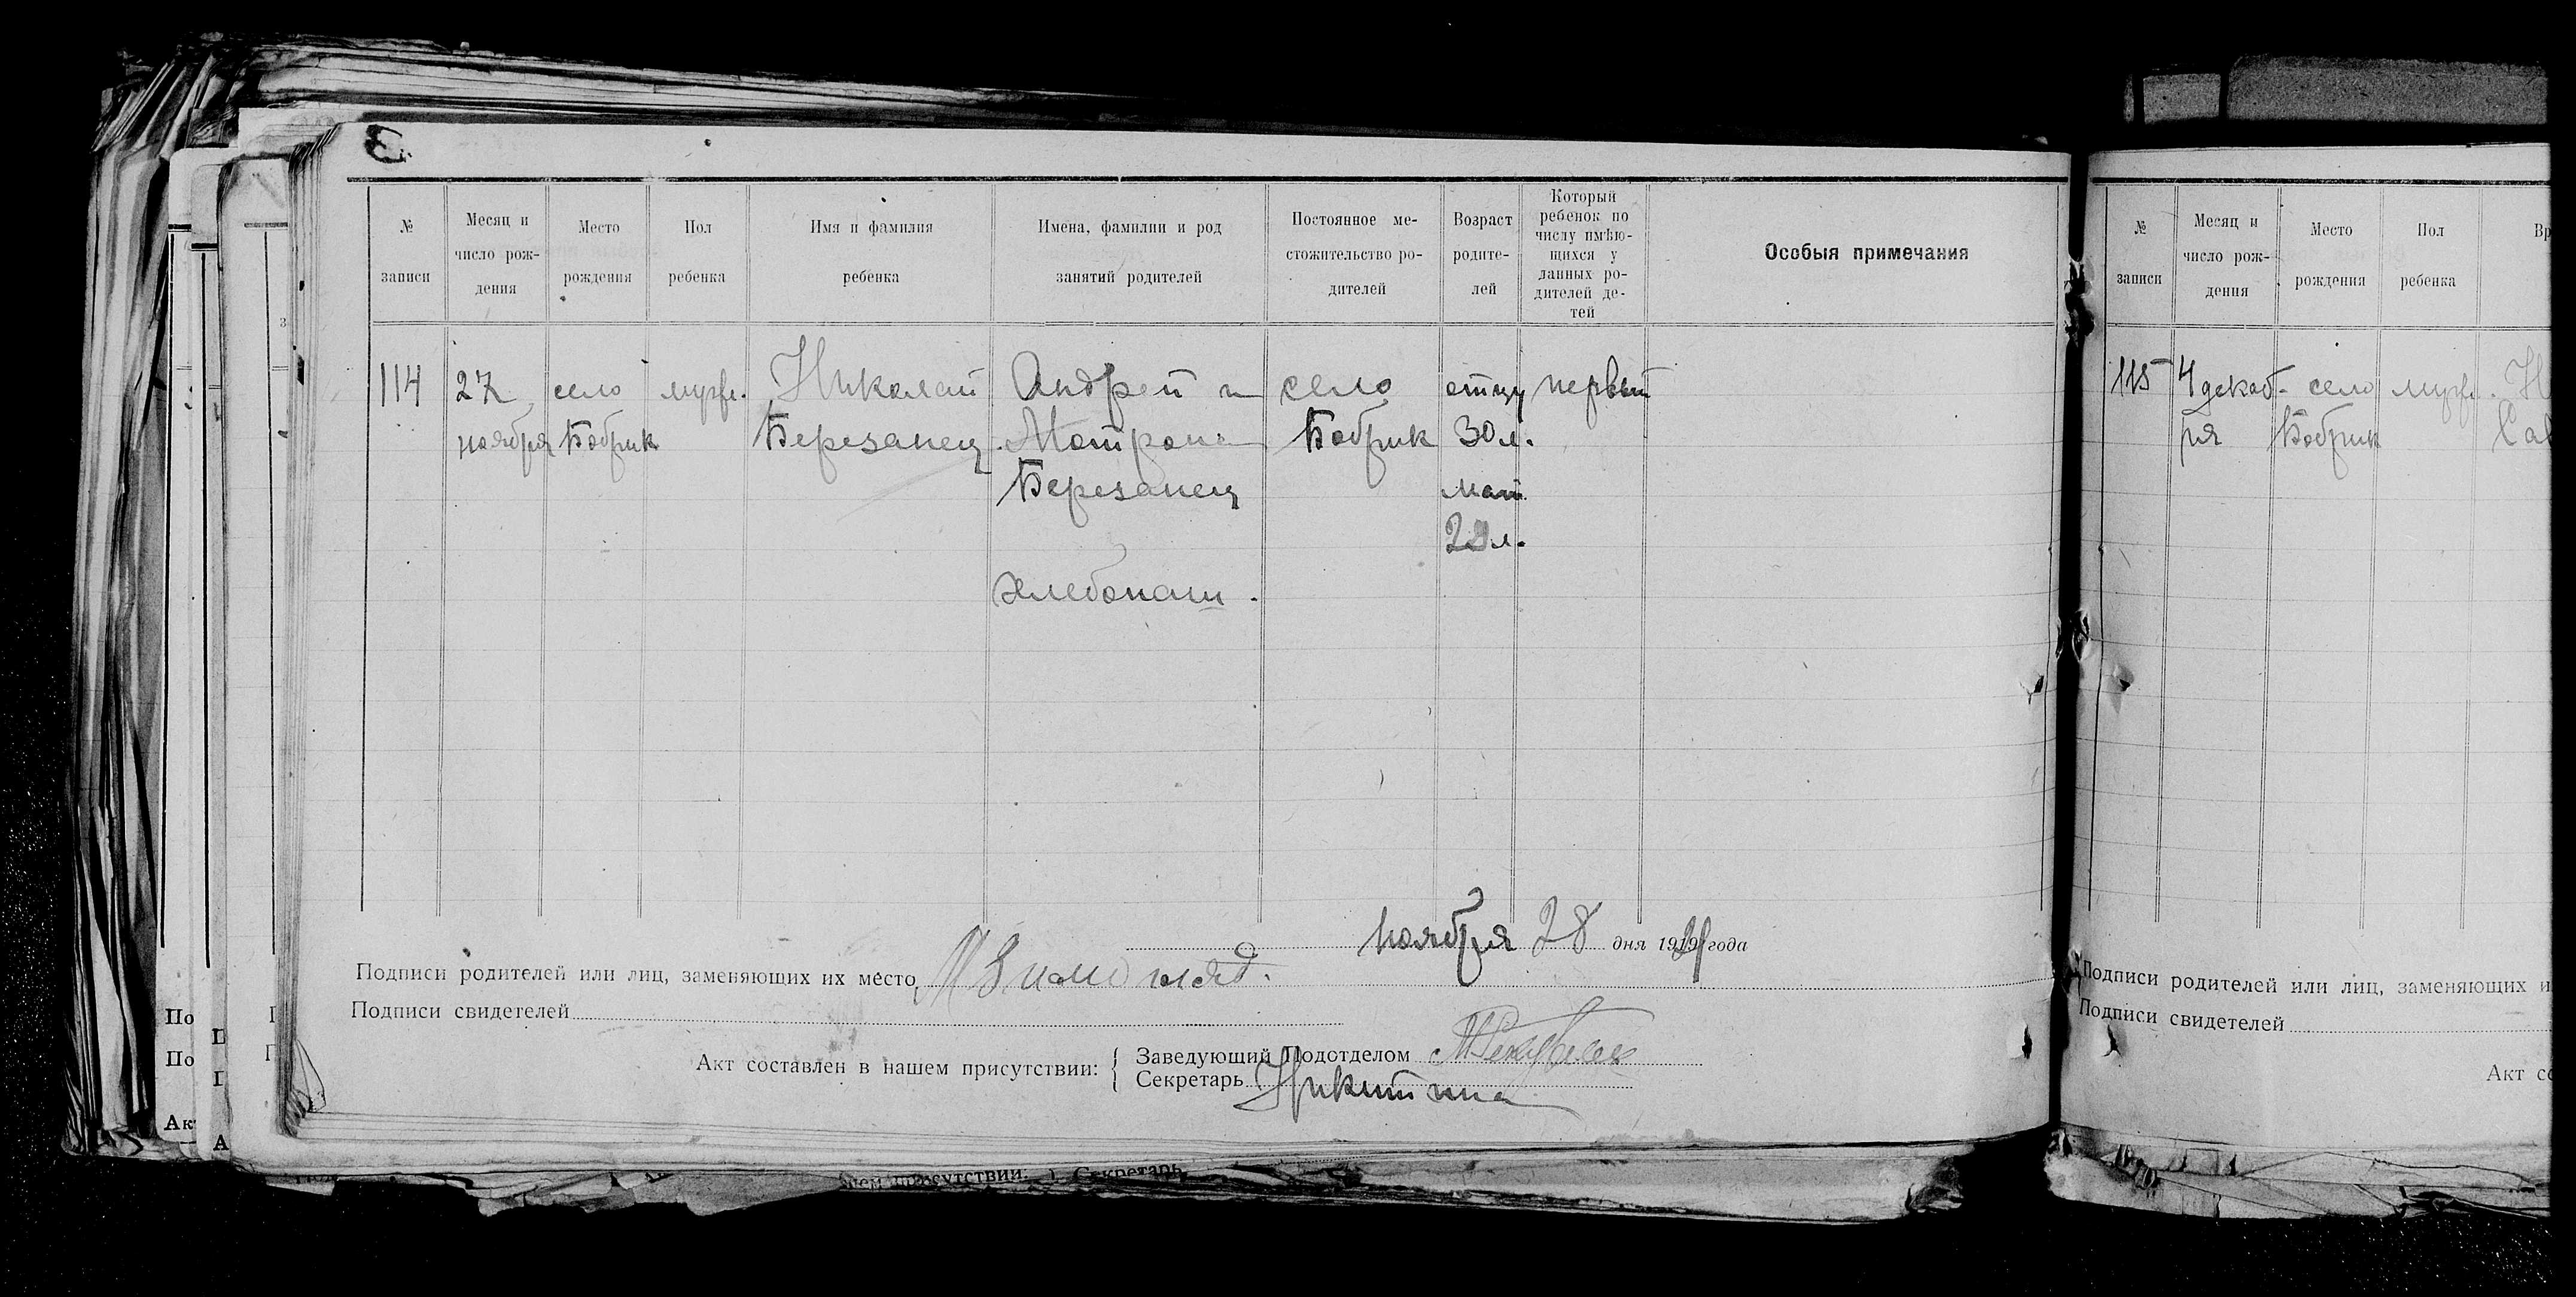 № записи
Месяц и число рож-дения
Место рождения
Пол ребенка
Имя и фамилия ребенка
Имена, фамилии и род занятий родителей
Постоянное ме-стожительство ро-дителей
Возраст родите-лей
Который ребенок по числу имѣю-щихся у данных ро-дителей де-тей
Особыя примечания
114 27 село мужс. Николай Андрей и село отцу первый
ноября Бобрик Березанец Мотрона Бобрик 30 л.
Березанец мат.
л.
хлебопаш.
ноября 28 дня 1921 года
Подписи родителей или лиц, заменяющих их место
Подписи свидетелей
Акт составлен в нашем присутствии:
Заведующий Подотделом
Секретарь Никитина
№ записи
Месяц и число рож-дения
Место рождения
Пол ребенка
115 4 декаб- село мужс.
ря Бобрик
Подписи родителей или лиц, заменяющих и
Подписи свидетелей
Акт со
По
По
Ак
нем присутствии: Секретарь